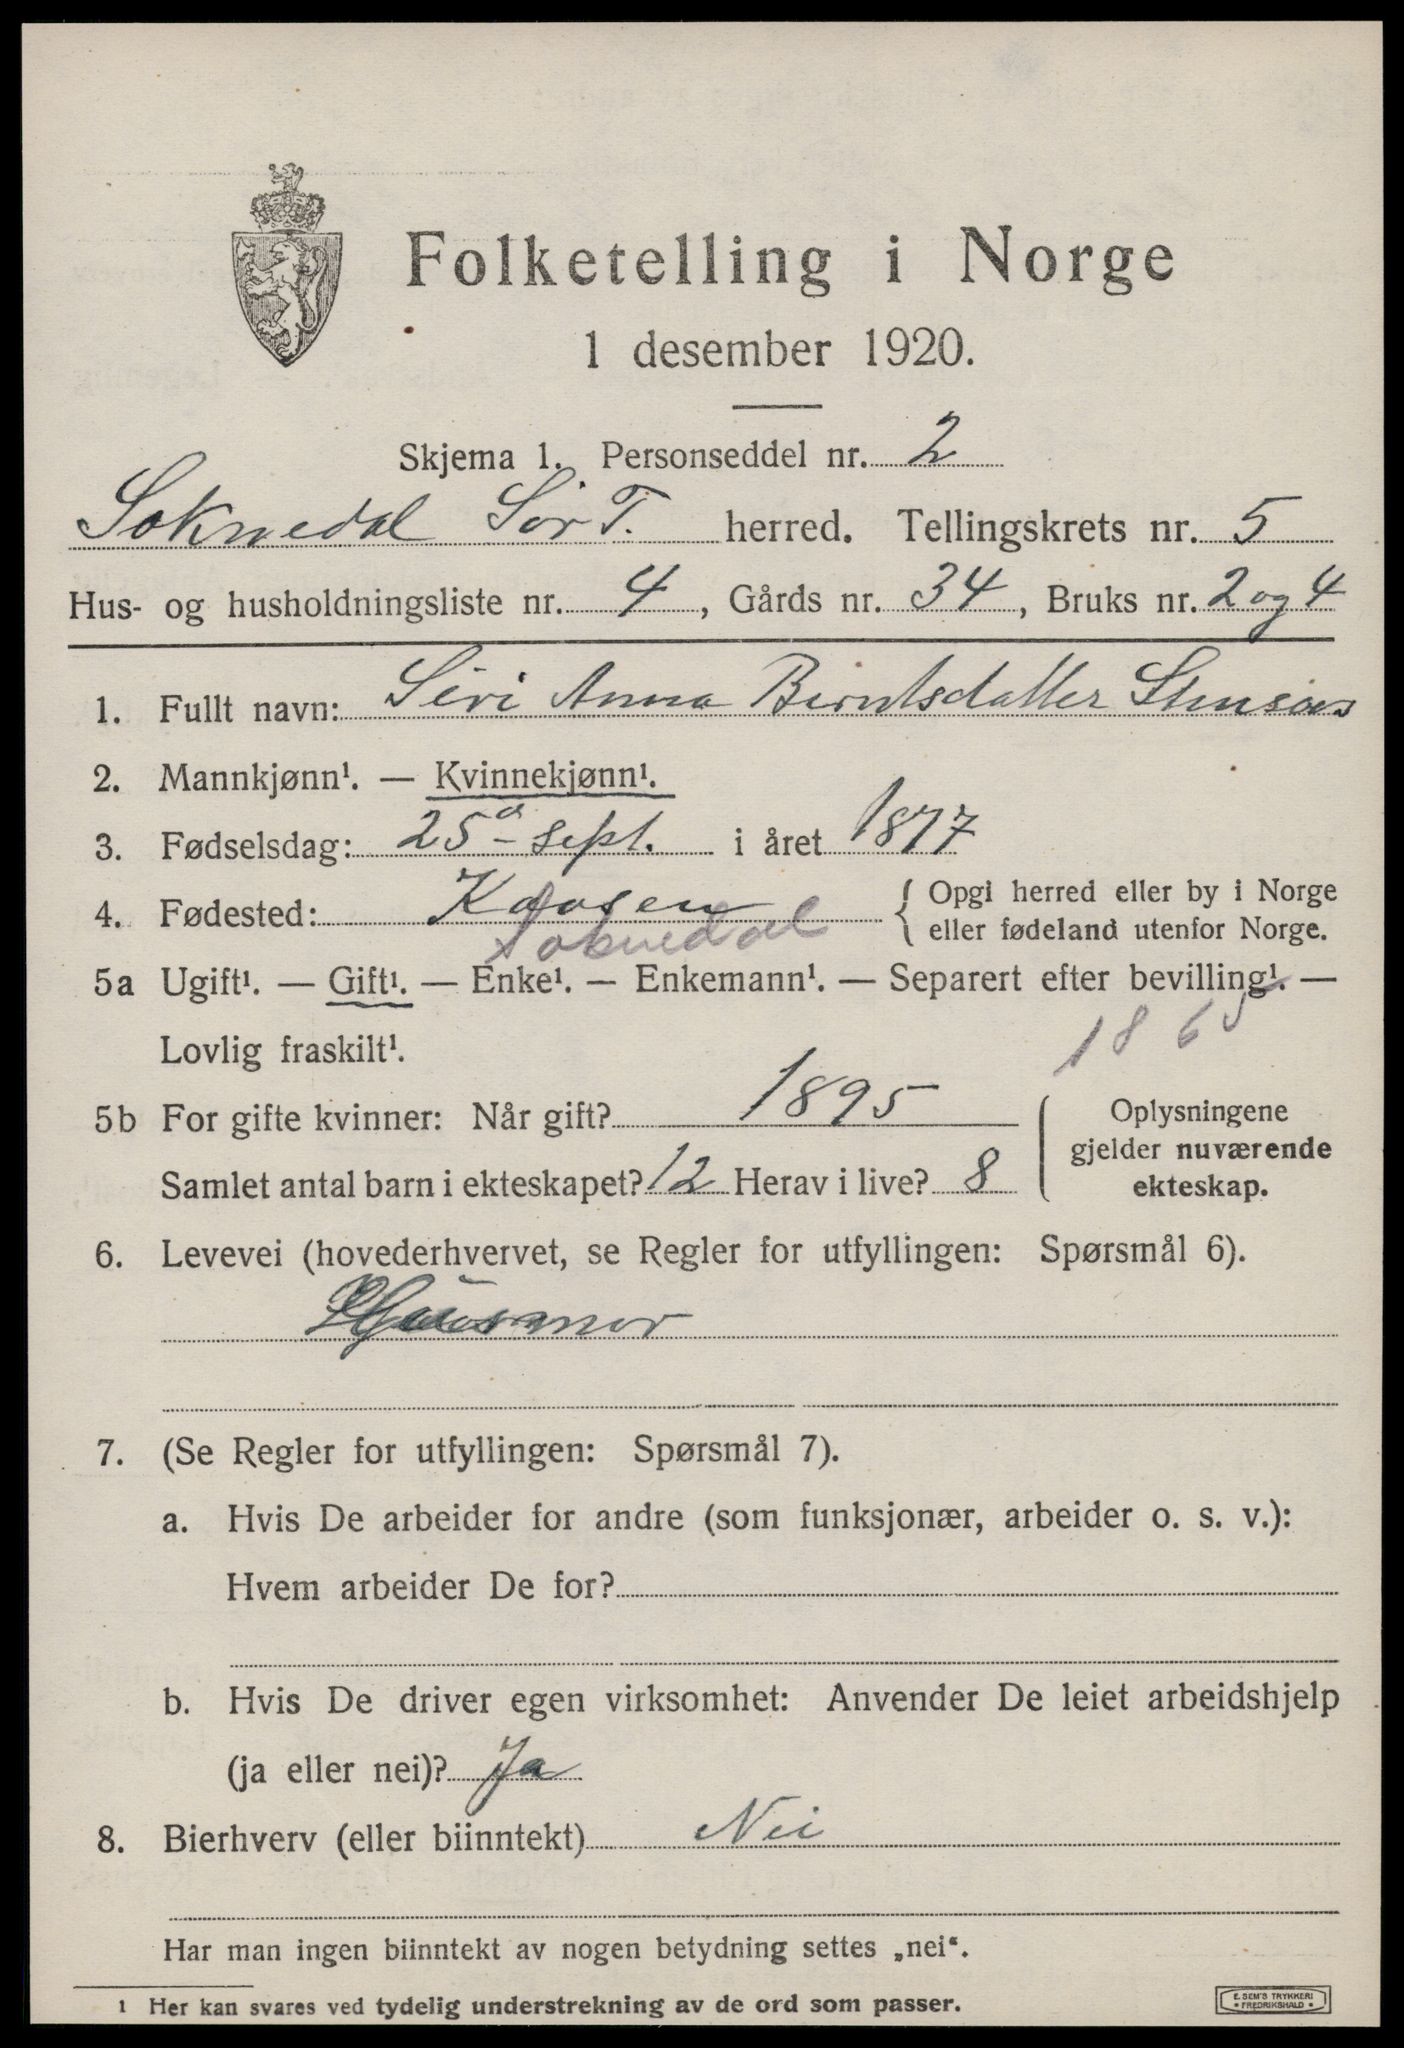 Folketelling i Norge
1 desember 1920.
Skjema 1. Personseddel nr. 2
Soknedal Sør T. herred. Tellingskrets nr. 5
Hus- og husholdningsliste nr. 4, Gårds nr. 34, Bruks nr. 2 og 4
1. Fullt navn: Siri Anna Berntsdatter Stensaas
2. Mannkjønn¹. — Kvinnekjønn¹.
3. Fødselsdag: 25d- sept. i året 1877
4. Fødested: Kaasen { Opgi herred eller by i Norge
eller fødeland utenfor Norge.
Soknedal
5a Ugift¹. — Gift¹. — Enke¹. — Enkemann¹. — Separert efter bevilling¹. —
Lovlig fraskilt¹.
1865
5b For gifte kvinner: Når gift? 1895
Samlet antal barn i ekteskapet? 12 Herav i live? 8
Oplysningene
gjelder nuværende
ekteskap.
6. Levevei (hovederhvervet, se Regler for utfyllingen: Spørsmål 6).
Husmor
7. (Se Regler for utfyllingen: Spørsmål 7).
a. Hvis De arbeider for andre (som funksjonær, arbeider o. s. v.):
Hvem arbeider De for?
b. Hvis De driver egen virksomhet: Anvender De leiet arbeidshjelp
(ja eller nei)? Ja
8. Bierhverv (eller biinntekt) Nei
Har man ingen biinntekt av nogen betydning settes „nei“.
1 Her kan svares ved tydelig understrekning av de ord som passer.
E. SEM'S TRYKKERI
• FREDRIKSHALD •